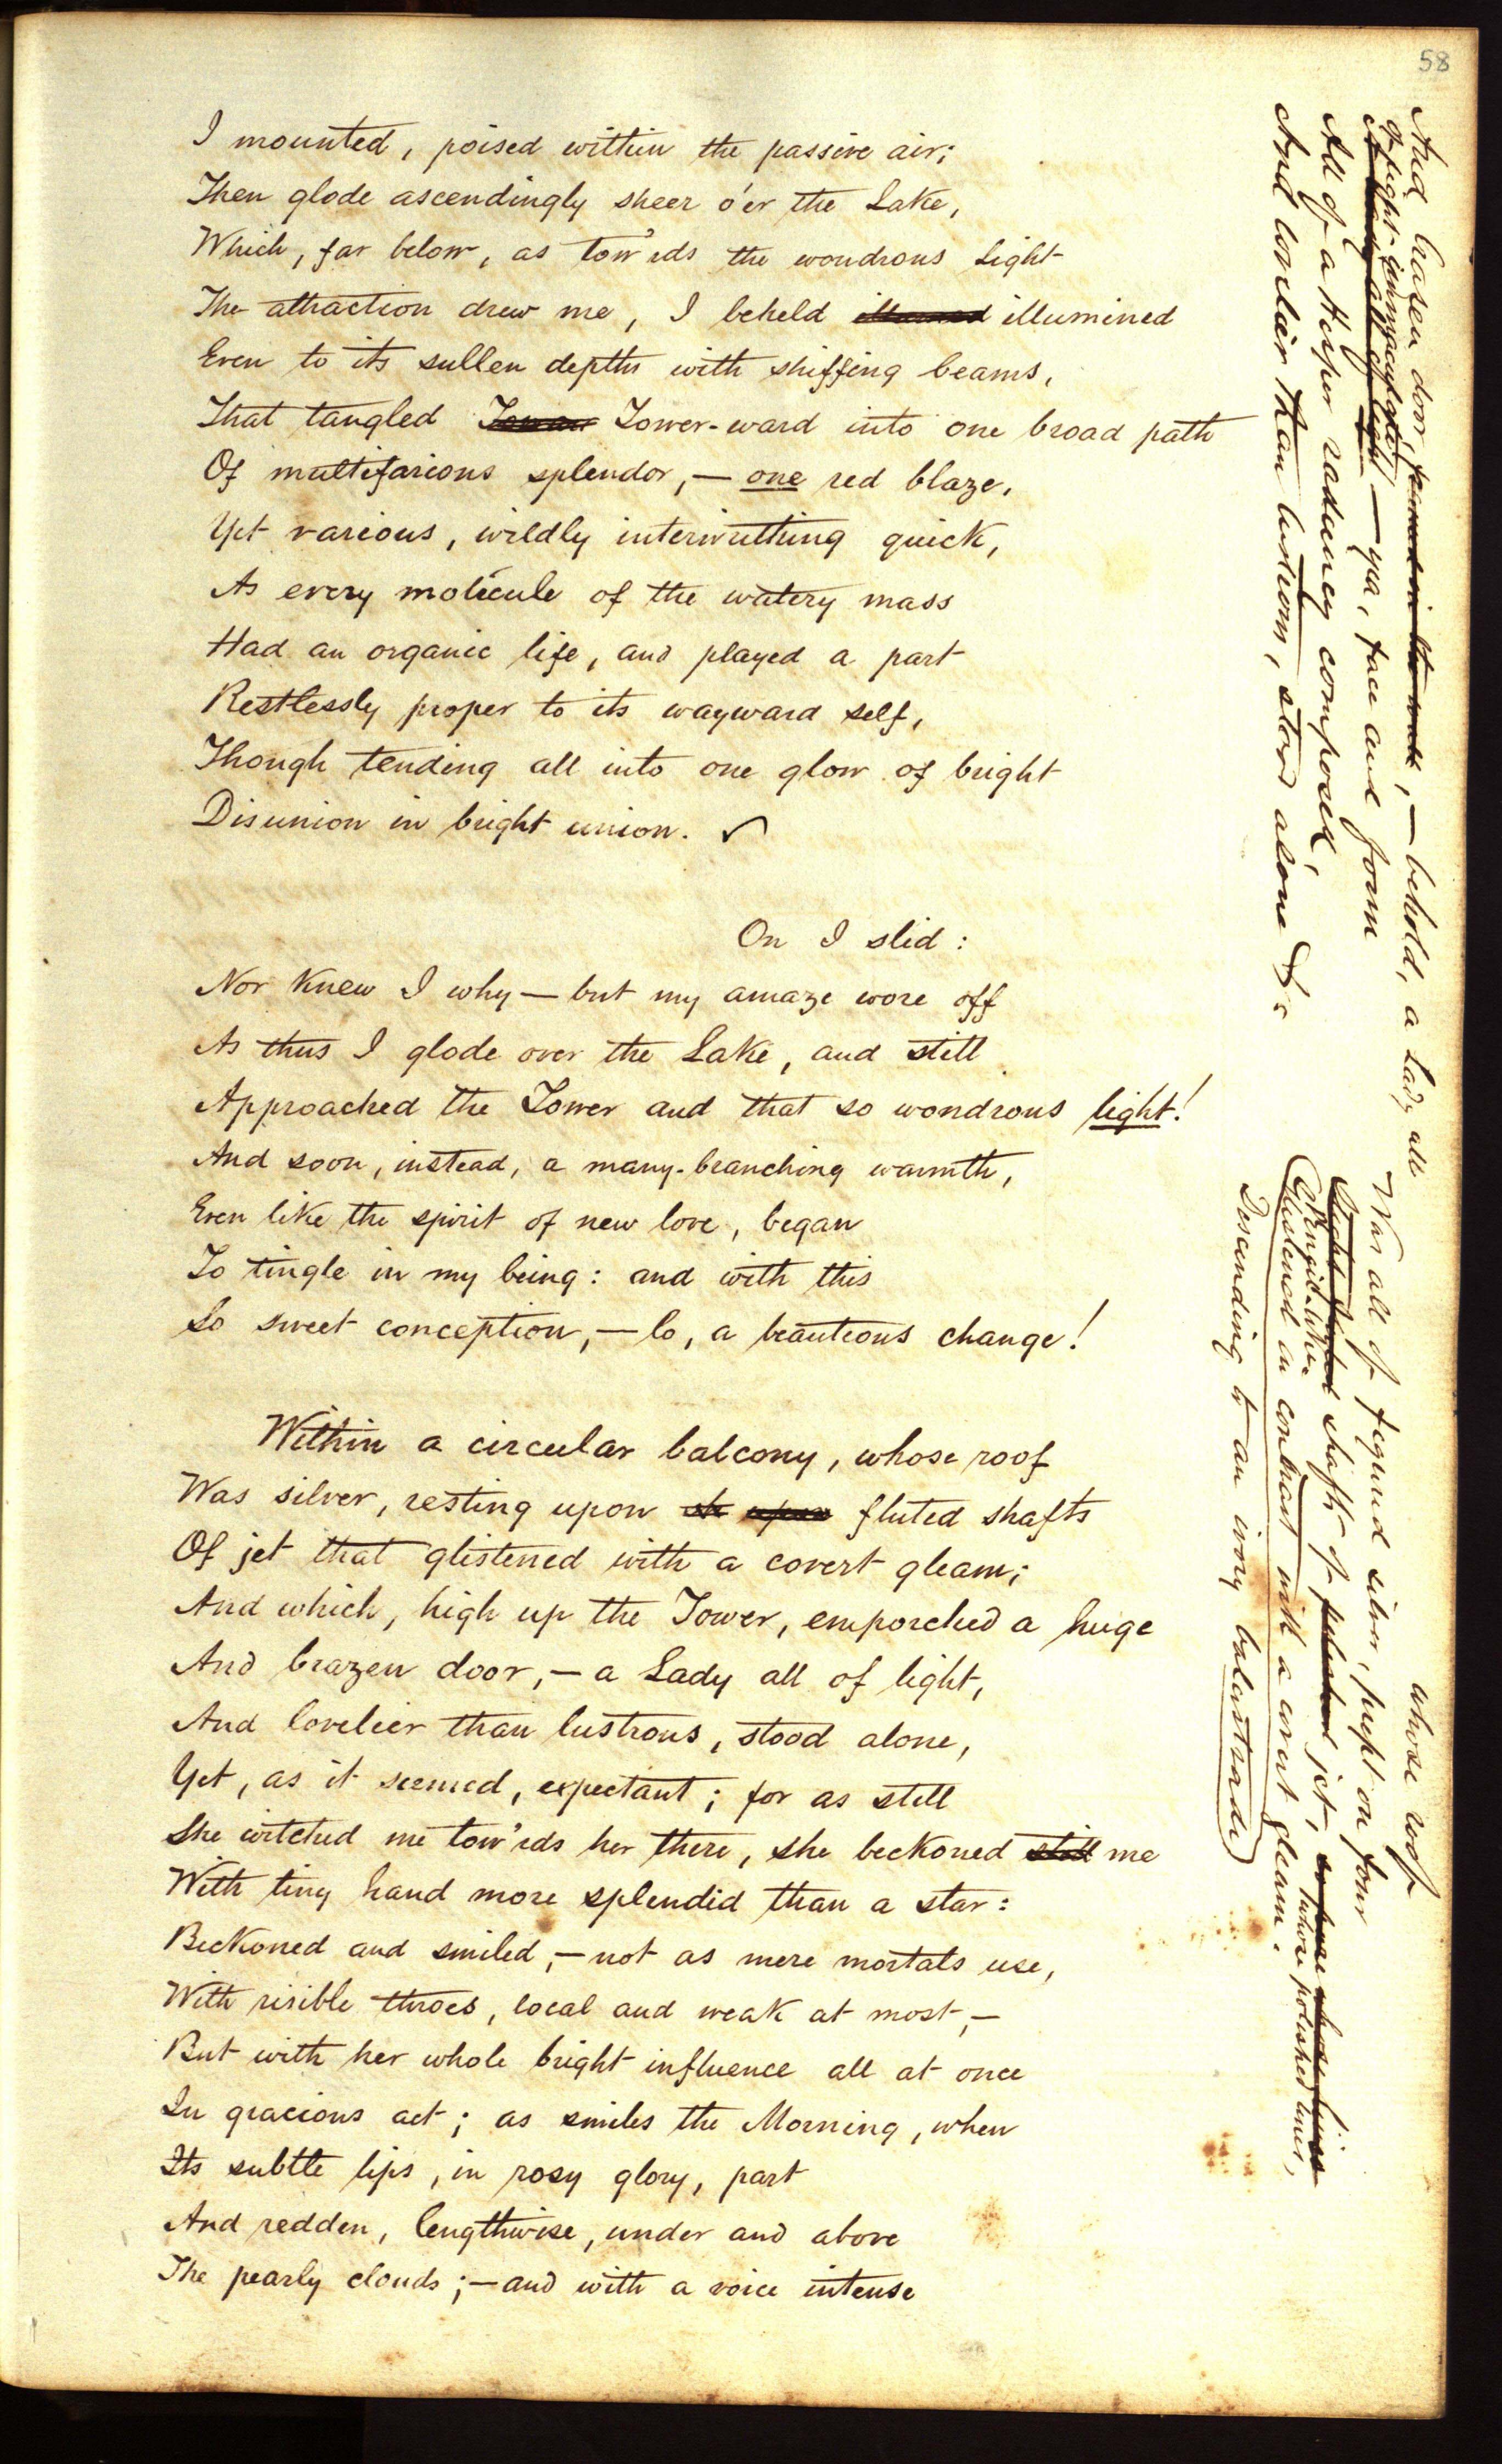 58
I mounted, poised within the passive air;
Then glode ascendingly sheer o'er the Lake,
Which, far below, as tow'rds the wondrous Light
The attraction drew me, I beheld illumined
Even to its sullen depths with shifting beams,
That tangled Tower-ward into one broad path
Of multifarious splendor,— one red blaze,
Yet various, wildly interwrithing quick,
As every molecule of the watery mass
Had an organic life, and played a part
Restlessly proper to its wayward self,
Though tending all into one glow of bright
Disunion in bright union. ✓
On I slid:
Nor knew I why — but my amaze wore off
As thus I glode over the Lake, and still
Approached the Tower and that so wondrous light!
And soon, instead, a many-branching warmth,
Even like the spirit of new love, began
To tingle in my being: and with this
So sweet conception,— lo, a beauteous change!
Within a circular balcony, whose roof
Was silver, resting upon fluted shafts
Of jet that glistened with a covert gleam;
And which, high up the Tower, emporched a huge
And brazen door,— a Lady all of light,
And lovelier than lustrous, stood alone,
Yet, as it seemed, expectant; for as still
She witched me tow'rds her there, she beckoned still me
With tiny hand more splendid than a star:
Beckoned and smiled,— not as mere mortals use,
With risible throes, local and weak at most,—
But with her whole bright influence all at once
In gracious act; as smiles the Morning, when
Its subtle lips, in rosy glory, part
And redden, lengthwise, under and above
The pearly clouds;— and with a voice intense
And brasen door, formed in the wall,— behold, a Lady all
Of light immaculate,
— yea, face and form
All of a Hesper radiency composed,
And lovelier than lustrous, stood alone &c
whose roof
Was all of figured silver, prept on four
shafts of polished jet, whose polished lines,
Glistened in contrast with a covert gleam.
Descending to an ivory balustrade